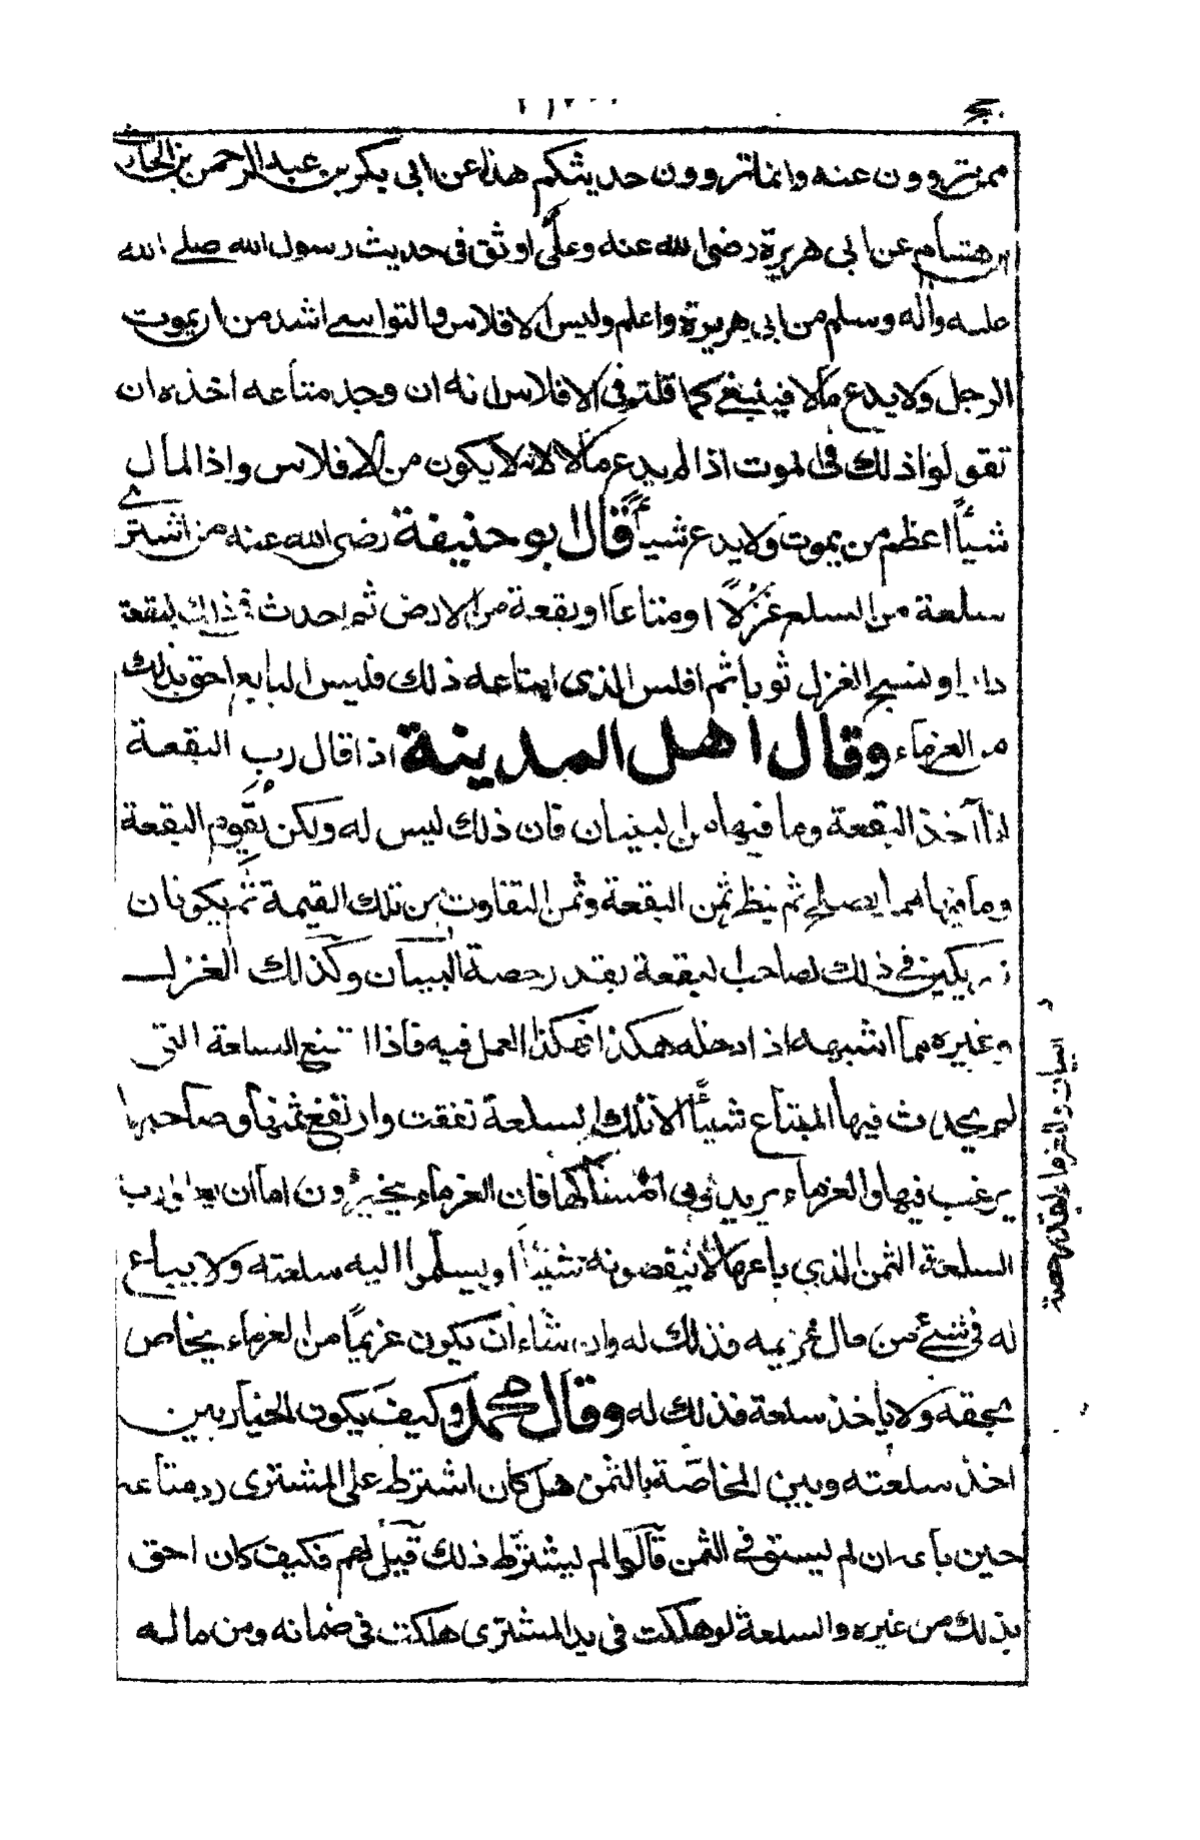 ممن تروون عنه وانما تروون حديثكم هذا عن ابي بكر بن عبد الرحمن بن الحارث
ابن هشام عن ابي هريرة رضي الله عنه وعلي اوثق في حديث رسول الله صلى الله
عليه واله وسلم من ابي هريرة واعلم وليس الافلاس والتواسع اشد من ان يموت
الرجل ولا يدع مالا فينبغي كما قلتم في الافلاس انه ان وجد متاعه اخذه ان
تقولوا ذلك في الموت اذا لم يدع مالا لانه لا يكون من الافلاس واذا المال
شيئاً اعظم من يموت ولا يدع شيئاً قال ابو حنيفة رضي الله عنه من اشترى
سلعة من السلع غزلاً او متاعا او بقعة من الارض ثم احدث في ذلك البقعة
دارا او نسج الغزل ثوبا ثم افلس الذي ابتاعه ذلك فليس البايع احق بذلك
من الغرماء وقال اهل المدينة اذا قال رب البقعة
انا آخذ البقعة وما فيها من البنيان فان ذلك ليس له ولكن يقوم البقعة
وما فيها مما يصلح ثم ينظر ثمن البقعة وثمن التفاوت من تلك القيمة ثم يكونان
شريكين في ذلك لصاحب البقعة بقدر حصة البنيان وكذلك الغزل
وغيره مما اشبهه اذا دخله هكذا هكذا العمل فيه فاذا السلعة التي
لم يحدث فيها المبتاع شيئاً الا تلك السلعة نفقت وارتفع ثمنها وصاحبها
يرغب فيها والغرماء يريدون امساكها فان الغرماء يخيرون اما ان يعطوا رب
السلعة الثمن الذي باعها لا ينقصونه شيئاً او يسلموا اليه سلعته ولا يباع
له في شيء من مال غريمه فذلك له وان شاء ان يكون غريماً من الغرماء يحاص
بحقه ولا ياخذ سلعة فذلك له وقال محمد وكيف يكون الخيار بين
اخذ سلعته وبين المحاصة بالثمن هل كان اشترط على المشتري رد متاعه
حين باعه ان لم يستوف الثمن قالوا لم يشترط ذلك قيل لهم فكيف كان احق
بذلك من غيره والسلعة لو هلكت في يد المشتري هلكت في ضمانه ومن ماله
البنيان وللغرماء بقدر حصة